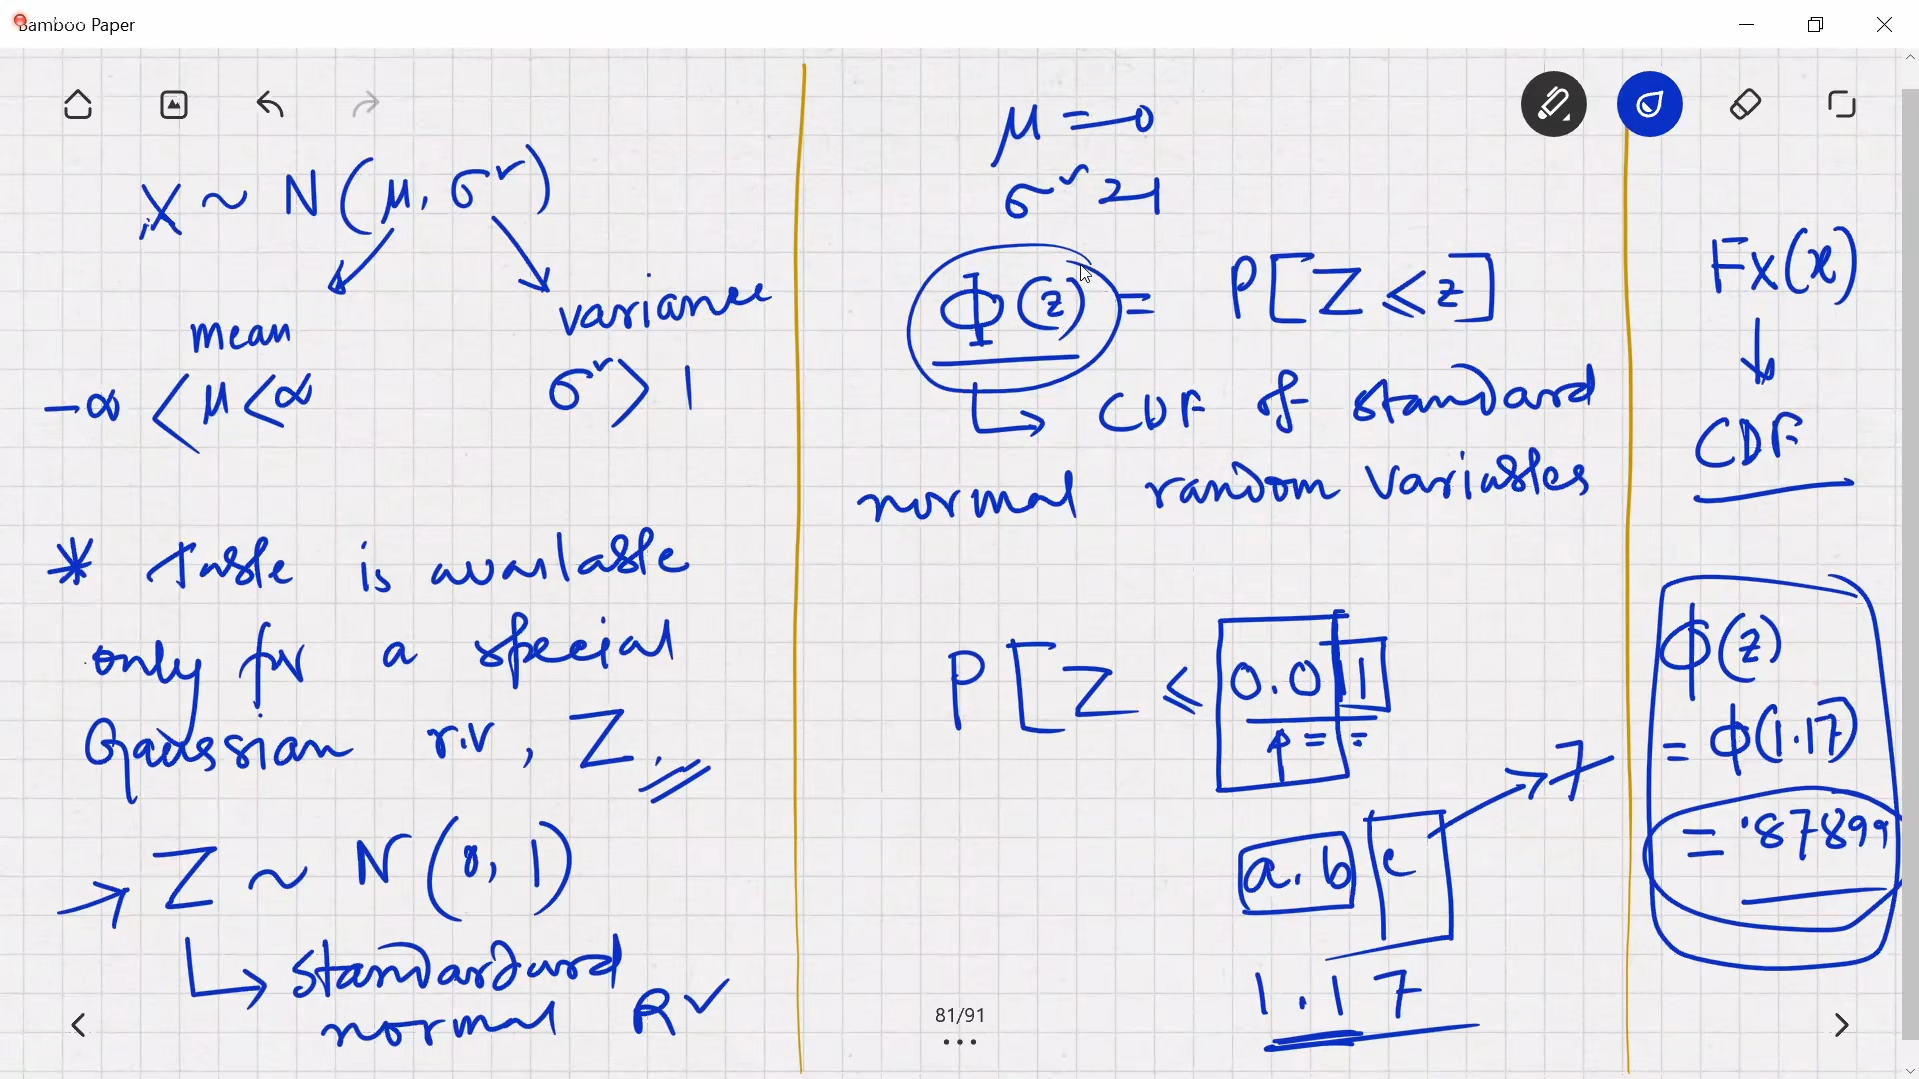 Bamboo Paper
X ~ N(μ, σ²)
mean
variance
-∞ < μ < ∞
σ² > 1
* Table is available
only for a special
Gaussian r.v, Z.
→ Z ~ N(0, 1)
↳ standard
normal RV
μ = 0
σ² = 1
Φ(z) = P[Z ≤ z]
↳ CDF of standard
normal random variables
P[Z ≤ 0.01
a.b c → 7
1.17
81/91
Fx(x)
↓
CDF
Φ(z)
= Φ(1.17)
= .87899